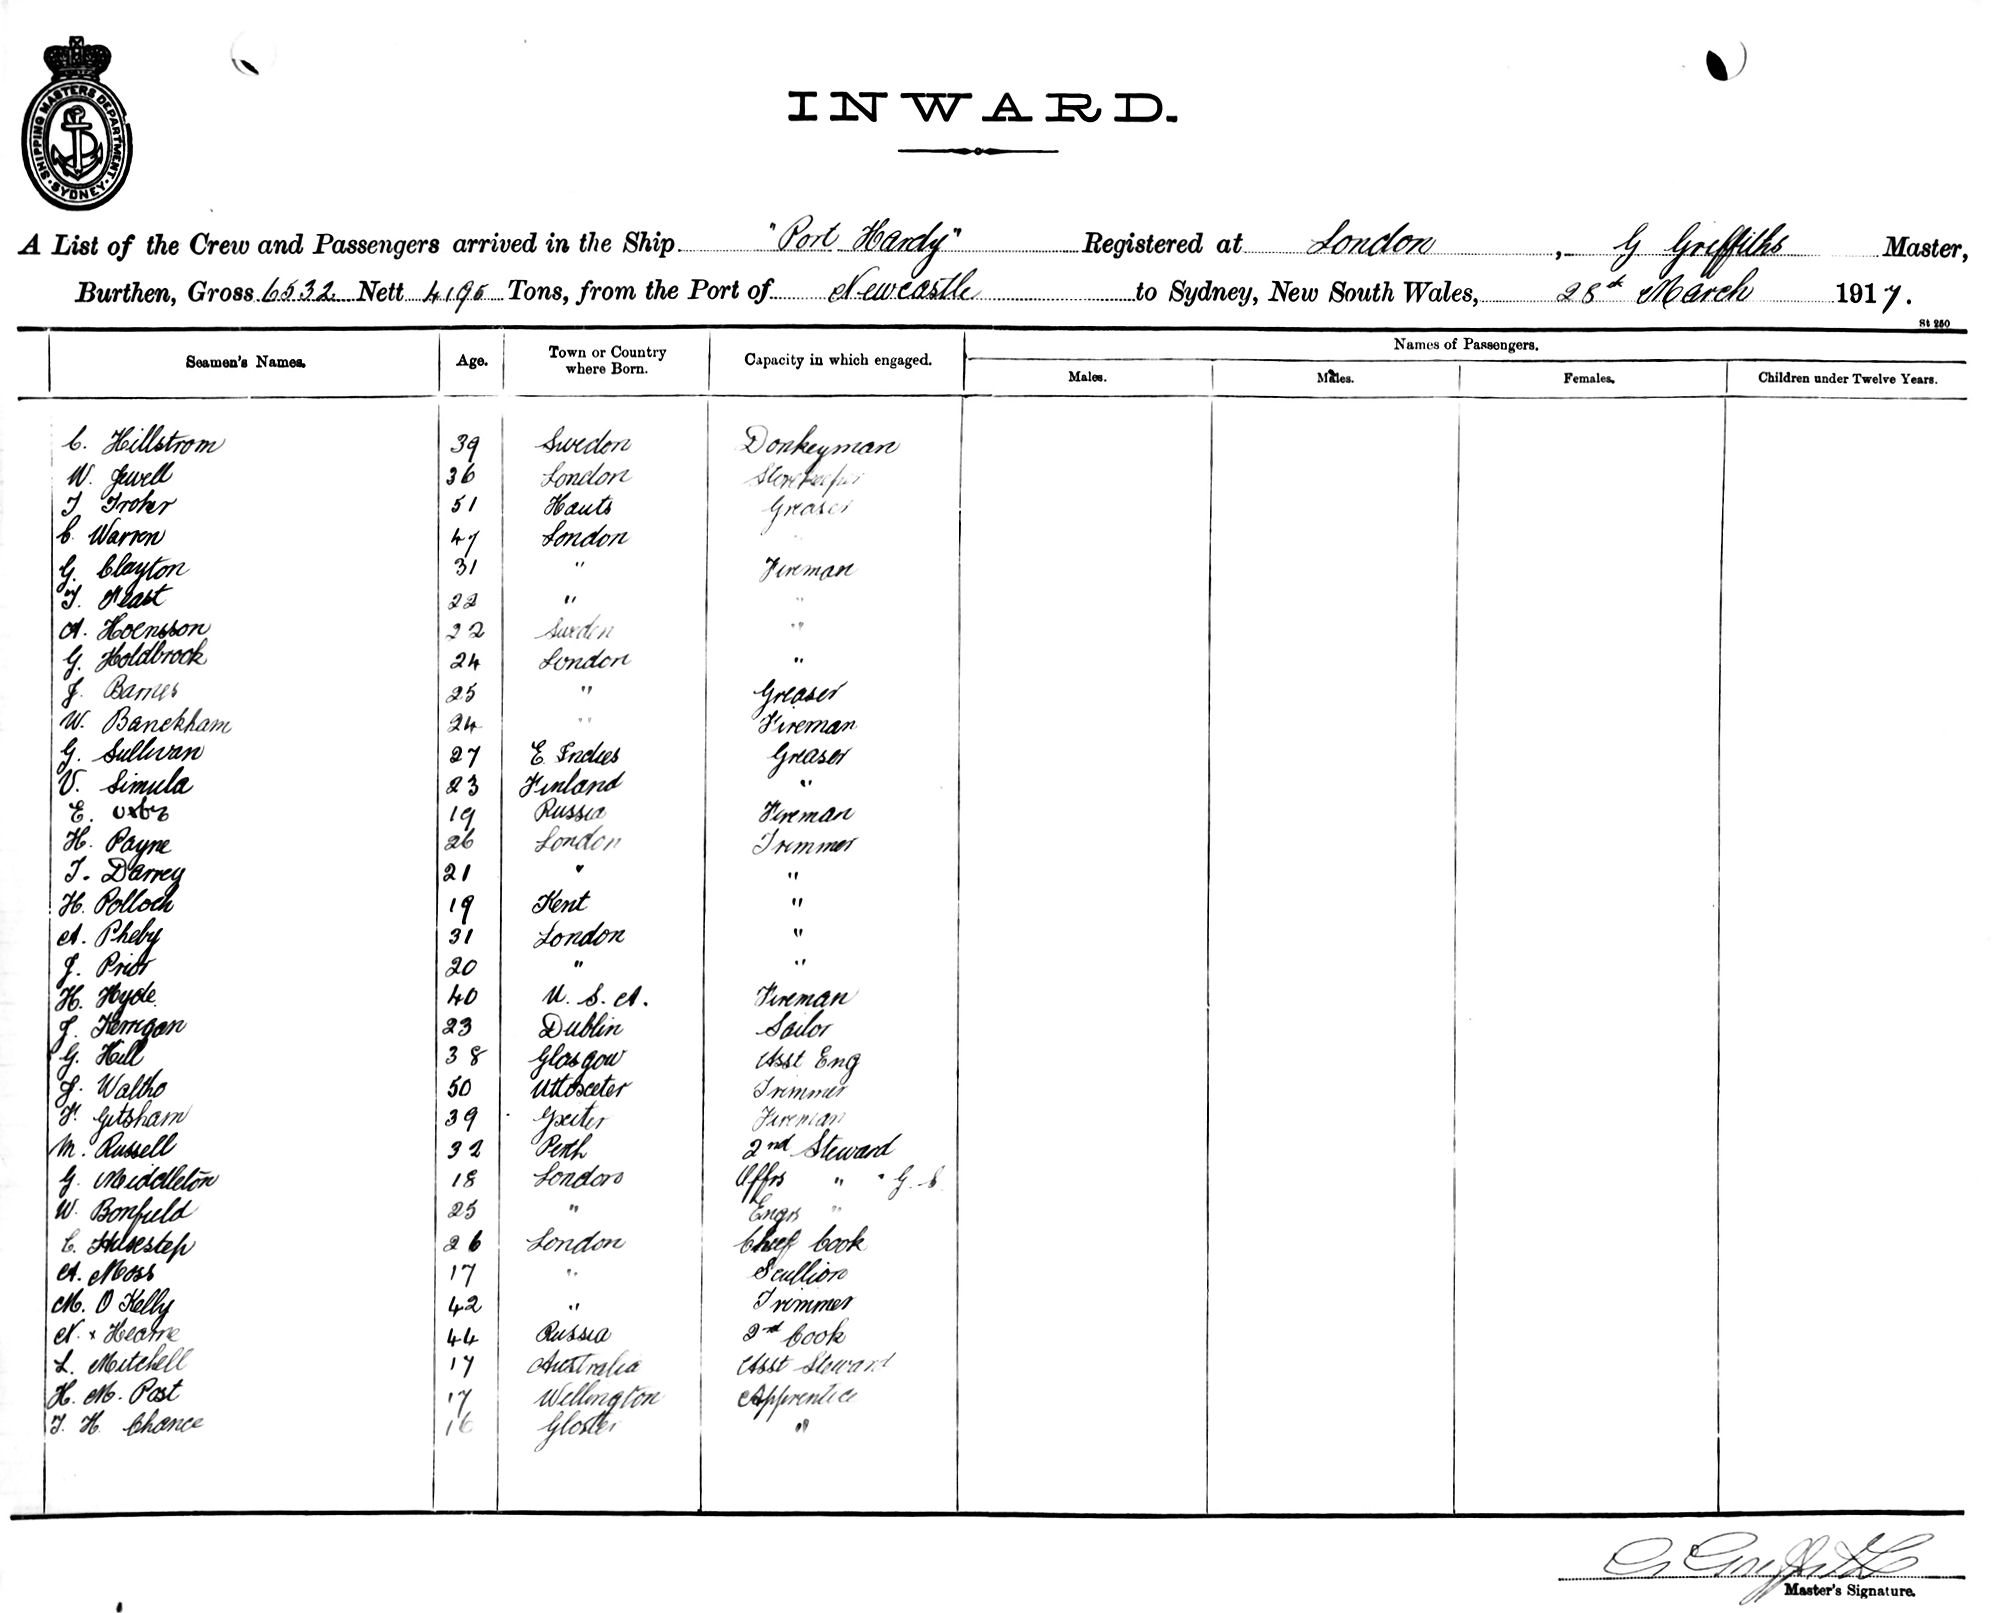 SHIPPING MASTERS DEPARTMENT
SYDNEY
INWARD.
A List of the Crew and Passengers arrived in the Ship "Port Hardy" Registered at London, G Griffiths Master,
Burthen, Gross 6532 Nett 4195 Tons, from the Port of Newcastle to Sydney, New South Wales, 28th March 1917.
St 250
Seamen's Names. Age. Town or Country where Born. Capacity in which engaged. Names of Passengers.
Males. Males. Females. Children under Twelve Years.
C. Hillstrom 39 Sweden Donkeyman
W. Jewell 36 London Storekeeper
T 51 Hants Greaser
C. Warren 47 London
G. Clayton 31 " Fireman
T. Neast 22 " "
A. Hoensson 22 Sweden "
G. Holdbrook 24 London "
J. Barnes 25 " Greaser
W. Banckham 24 " Fireman
G. Sullivan 27 E. Indies Greaser
V. Simula 23 Finland "
E. 19 Russia Fireman
H. Payne 26 London Trimmer
T. Darrey 21 " "
H. Polloch 19 Kent "
A. Pheby 31 London "
J. Prior 20 " "
H. Hyde 40 U. S. A. Fireman
J. Kerrigan 23 Dublin Sailor
G. Hill 38 Glasgow Asst Eng
J. Waltho 50 Uttoxeter Trimmer
F. Gutsham 39 Exeter Fireman
M. Russell 32 Perth 2nd Steward
G. Middleton 18 London Offrs " " G. S.
W. Bonfield 25 " Engrs "
C. 26 London Chief Cook
A. Moss 17 " Scullion
M. O Kelly 42 " Trimmer
N. x Hearne 44 Russia 2nd Cook
L. Mitchell 17 Australia Asst Steward
H. M. Post 17 Wellington Apprentice
T. H. Chance 16 Gloster "
G Griffiths
Master's Signature.